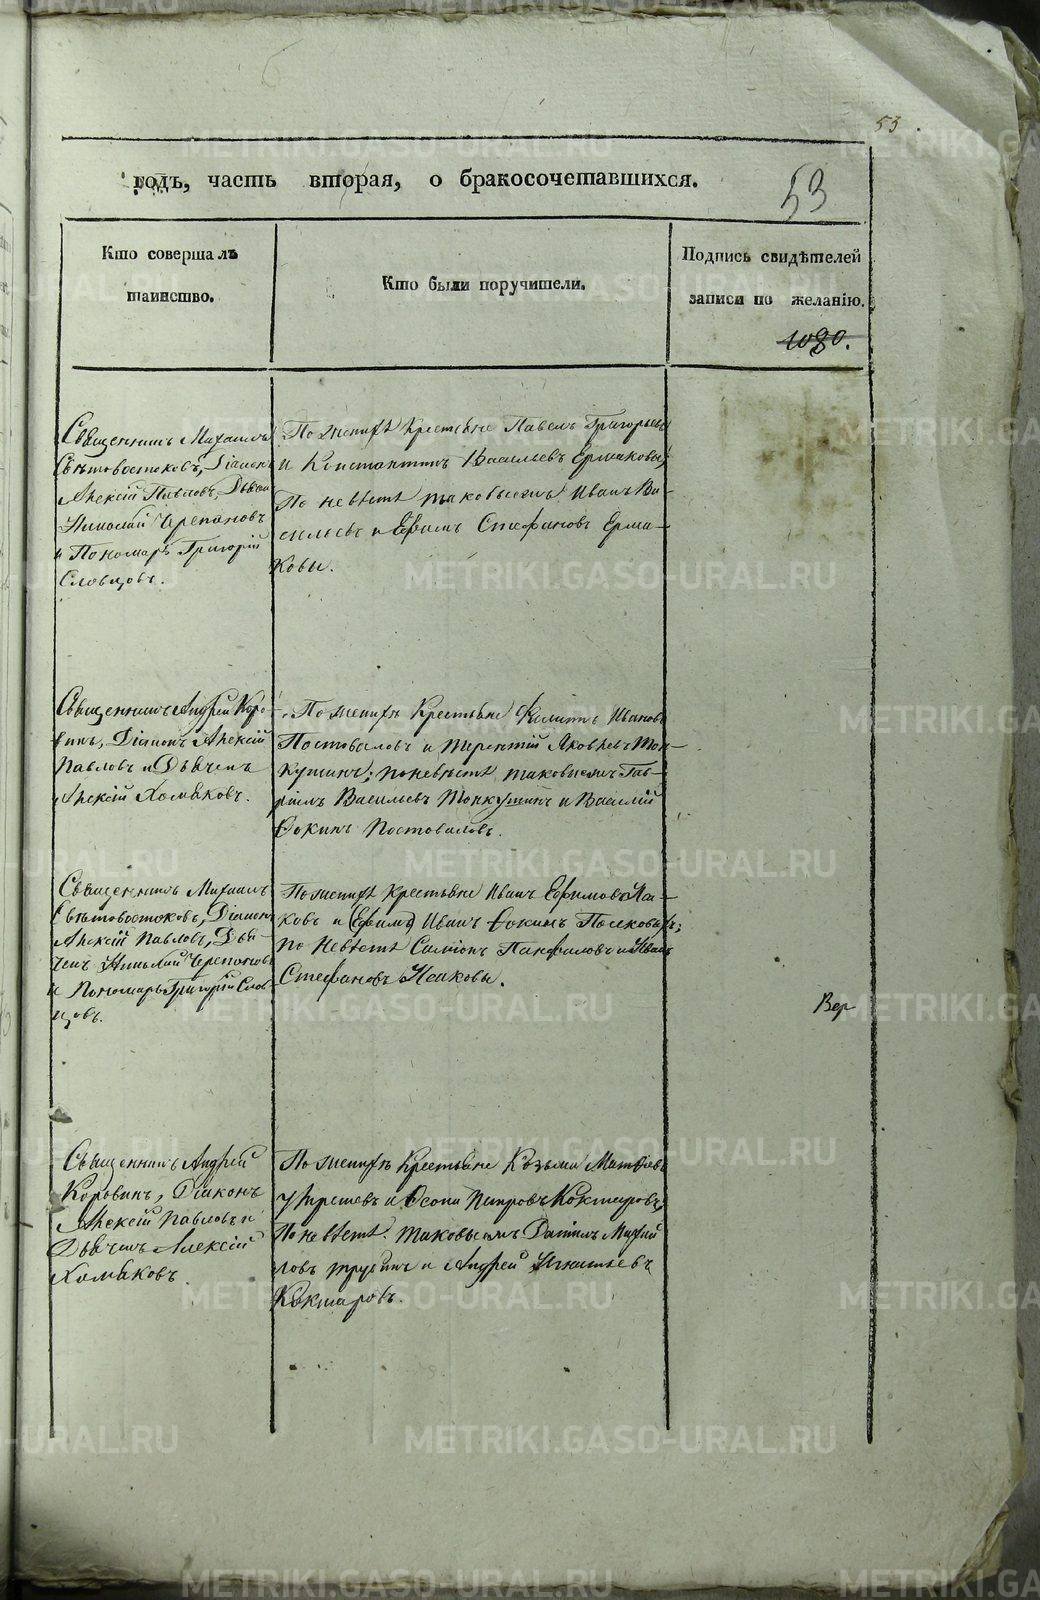 53
годъ, часть вторая, о бракосочетавшихся.
53
Кто совершалъ
таинство.
Кто были поручители.
Подпись свидѣтелей
записи по желанію.
Священникъ Михаилъ
Свѣтовостоковъ, Діаконъ
Алексій Павловъ, Дьячек
Николай Черепановъ
и Пономарь Григорій
Словцовъ.
По женихѣ Крестьяне Павелъ Григорьевъ
и Константинъ Васильевъ Ермаковы;
По невѣстѣ таковыежъ Иванъ Ва-
сильевъ и Ефимъ Стефановъ Ерма-
ковы.
Священникъ Андрей Коро-
винъ, Діаконъ Алексій
Павловъ и Дьячекъ
Алексій Хомяковъ.
По женихѣ Крестьяне Филипъ Ивановъ
Постоваловъ и Терентій Яковлевъ Тон-
кушинъ; по невѣстѣ таковыежъ Гав-
ріилъ Васильевъ Тонкушинъ и Василій
Ѳокинъ Постоваловъ.
Священникъ Михаилъ
Свѣтовостоковъ, Діаконъ
Алексій Павловъ, Дья-
чекъ Николай Черепановъ
и Пономарь Григорій Слов-
цовъ.
По женихѣ Крестьяне Иванъ Ефимовъ Иса-
ковъ и (Ефимъ) Иванъ Ѳокинъ Полековъ;
По невѣстѣ Симіонъ Панфиловъ и Иванъ
Стефановъ Исаковы.
Вер
Священникъ Андрей
Коровинъ, Діаконъ
Алексій Павловъ и
Дьячекъ Алексій
Хомяковъ.
По женихѣ Крестьяне Козьма Матвѣевъ
и Осипъ Петровъ Кокшаровъ,
По невѣстѣ таковыежъ Данилъ Михай
ловъ Трубинъ и Андрей Игнатьевъ
Кокшаровъ.